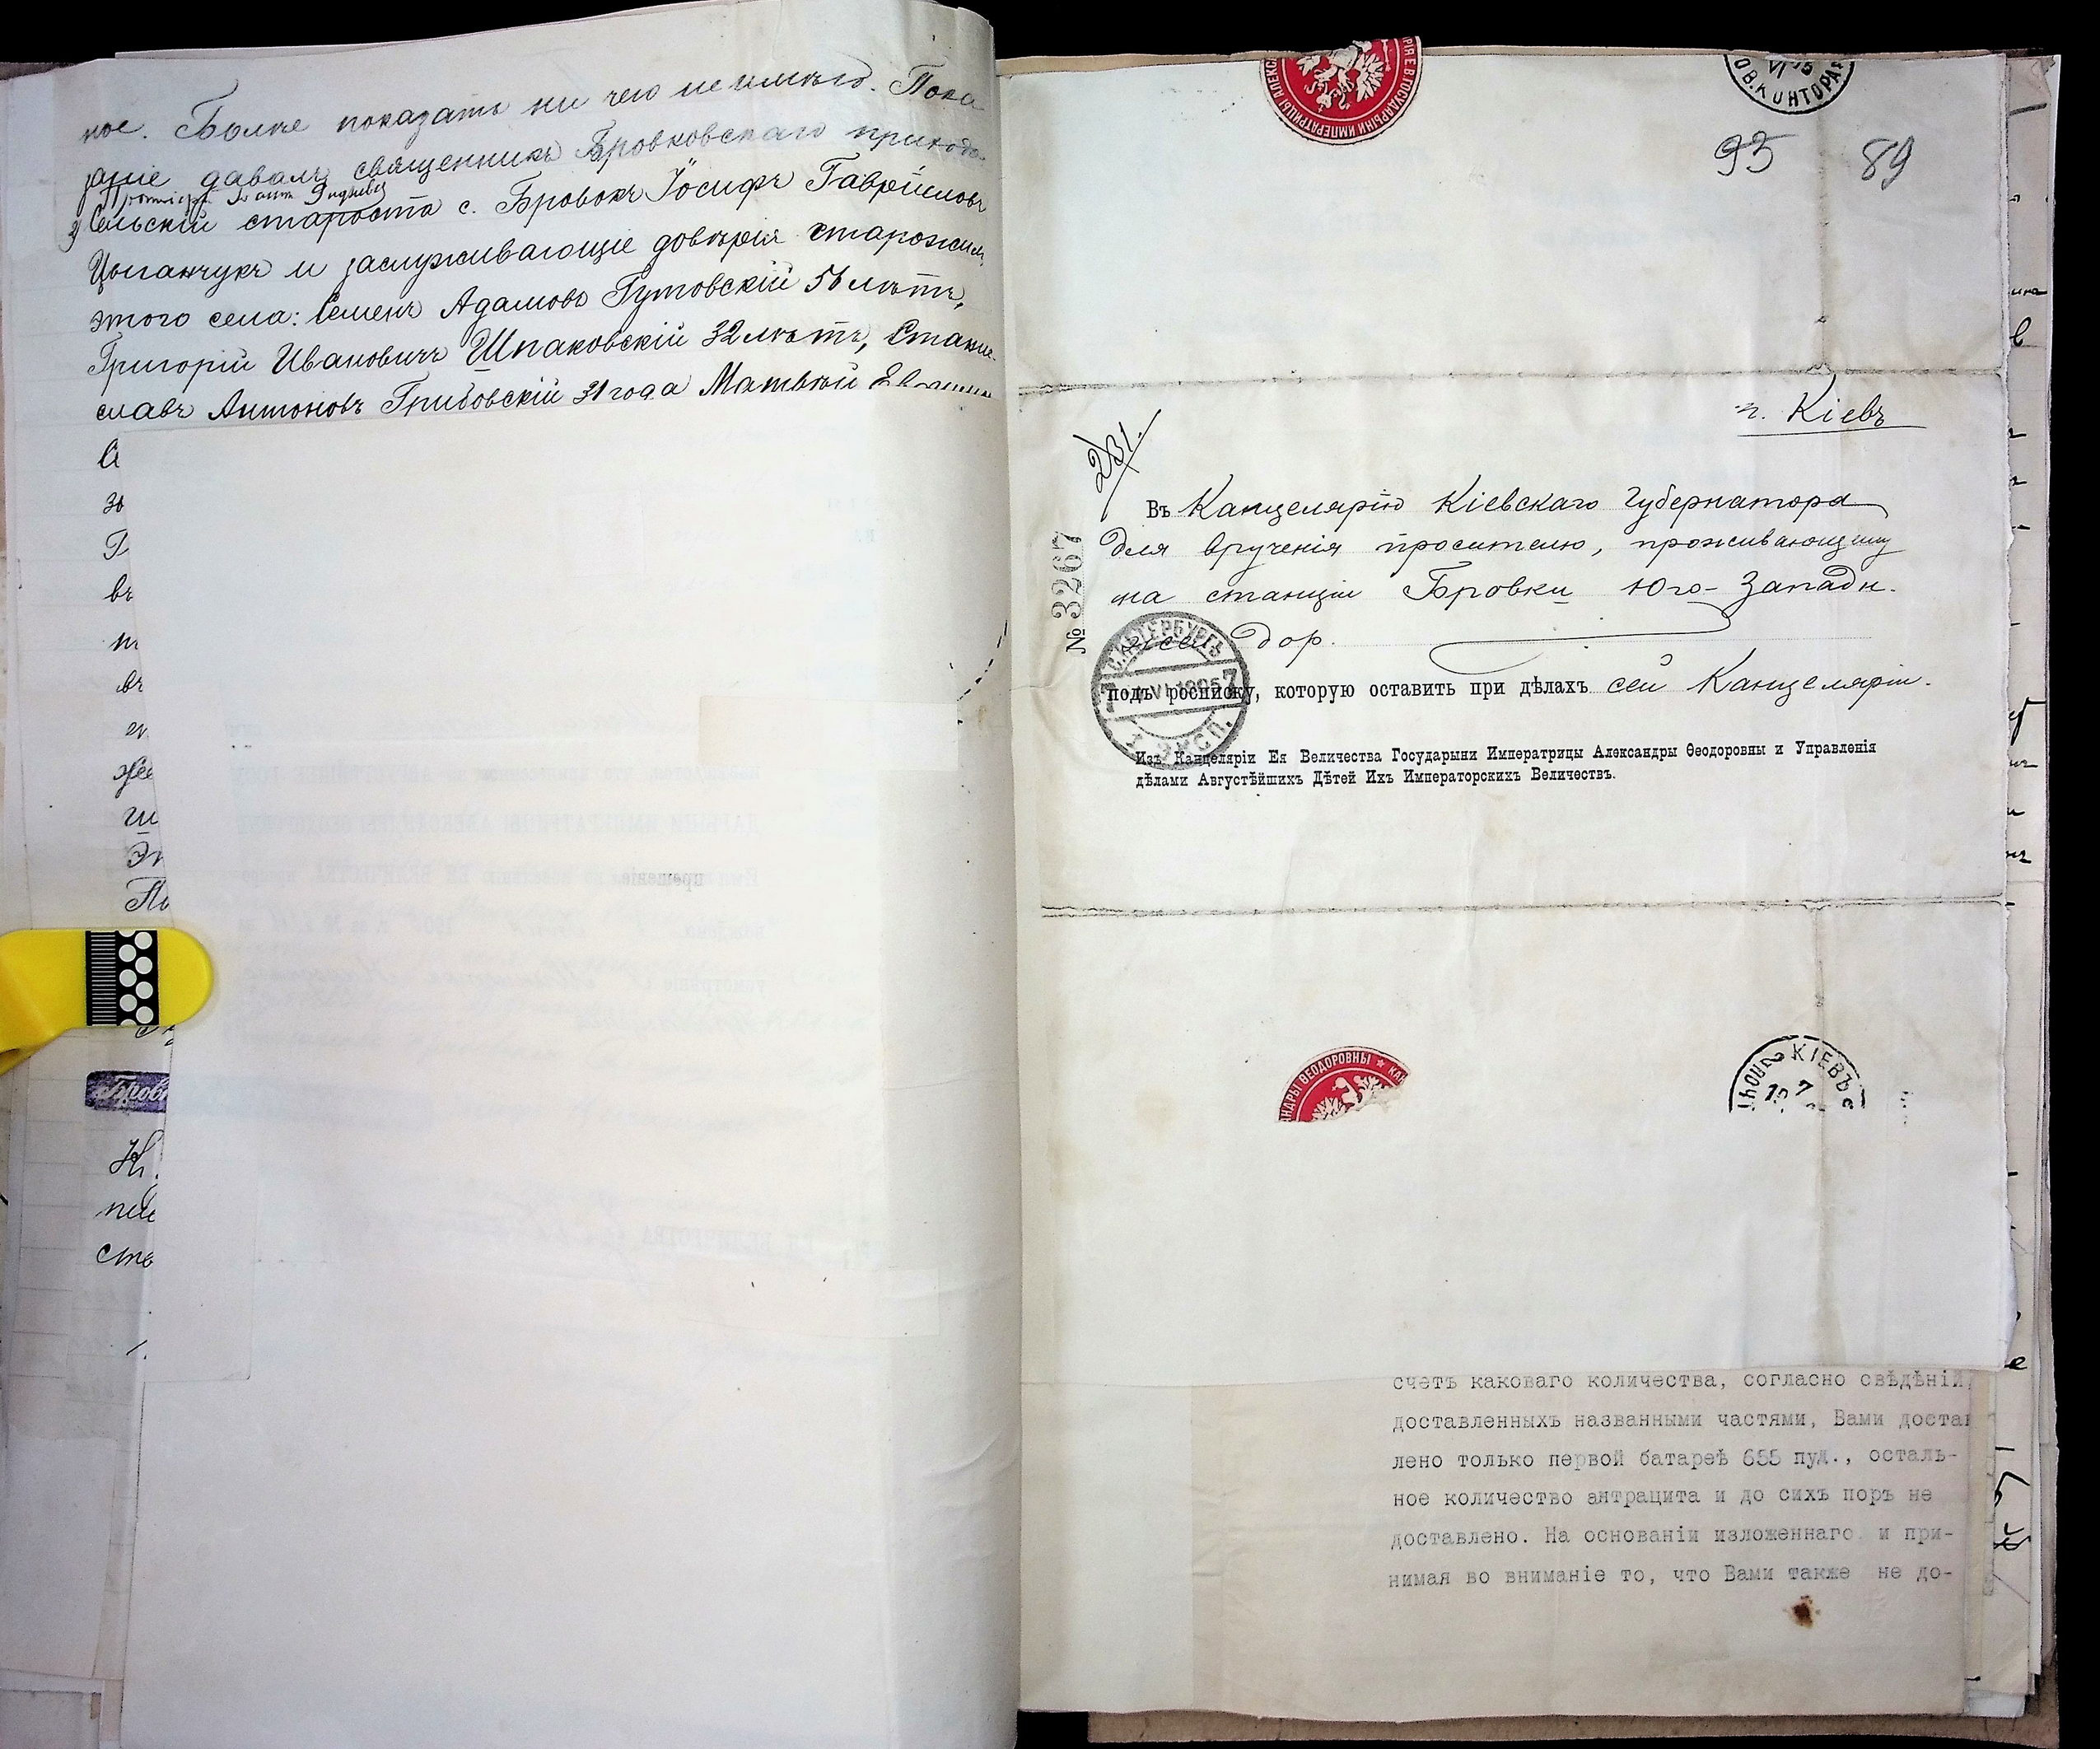 ное. Более показать ни чего не имѣю. Пока-
заніе давалъ священникъ Бровковскаго приход.
Сельскій староста с. Бровокъ Іосифъ Гаврійловъ
Цыганчукъ и заслуживающіе довѣрія старожил.
этого села: Семенъ Адамовъ Гутовскій 56 лѣтъ,
Григорій Ивановичъ Шпаковскій 32 лѣтъ, Стани-
славъ Антоновъ Грибовскій 31 года Матвѣй
С
зо
Г
въ
въ
же
ши
Эт
По
Бровк
пи
сто
РІЯ Е В ГОСУДАРЫНИ ИМПЕРАТРИЦЫ АЛЕКС
ОВ. КОНТОРА
93 89
г. Кіевъ
231.
№ 3267
Въ Канцелярію Кіевскаго Губернатора
для врученія просителю, проживающему
на станціи Бровки Юго-Западн.
жел. дор.
С.ПЕТЕРБУРГЪ
7 VI 1905 7
ЭКСП.
подъ росписку, которую оставить при дѣлахъ сей Канцеляріи.
Изъ Канцеляріи Ея Величества Государыни Императрицы Александры Ѳеодоровны и Управленія
дѣлами Августѣйшихъ Дѣтей Ихъ Императорскихъ Величествъ.
НДРЫ ѲЕОДОРОВНЫ * КАН
КІЕВЪ
счетъ каковаго количества, согласно свѣдѣній,
доставленныхъ названными частями, Вами достав
лено только первой батареѣ 655 пуд., осталь-
ное количество антрацита и до сихъ поръ не
доставлено. На основаніи изложеннаго и при-
нимая во вниманіе то, что Вами также не до-